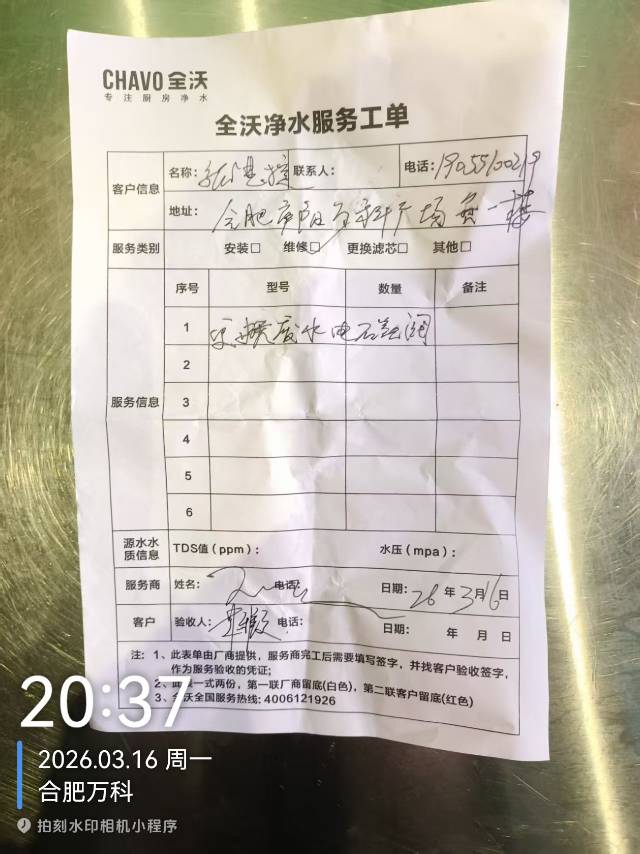 CHAVO 全沃
专注厨房净水
全沃净水服务工单
客户信息
名称： 联系人： 电话：
地址：合肥市 万科广场负一楼
服务类别 安装□ 维修□ 更换滤芯□ 其他□
服务信息
序号 型号 数量 备注
1 更换废水电磁阀
2
3
4
5
6
源水水质信息 TDS值（ppm）： 水压（mpa）：
服务商 姓名： 电话： 日期：26年3月16日
客户 验收人： 电话： 日期： 年 月 日
注：1、此表单由厂商提供，服务商完工后需要填写签字，并找客户验收签字，
作为服务验收的凭证；
2、此表一式两份，第一联厂商留底(白色)，第二联客户留底(红色)
3、全沃全国服务热线：4006121926
20:37
2026.03.16 周一
合肥万科
拍刻水印相机小程序